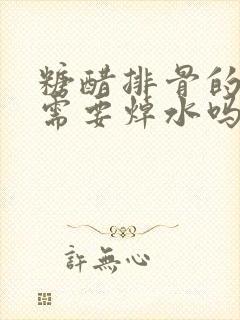 糖醋排骨的
需要焯水吗
許無心